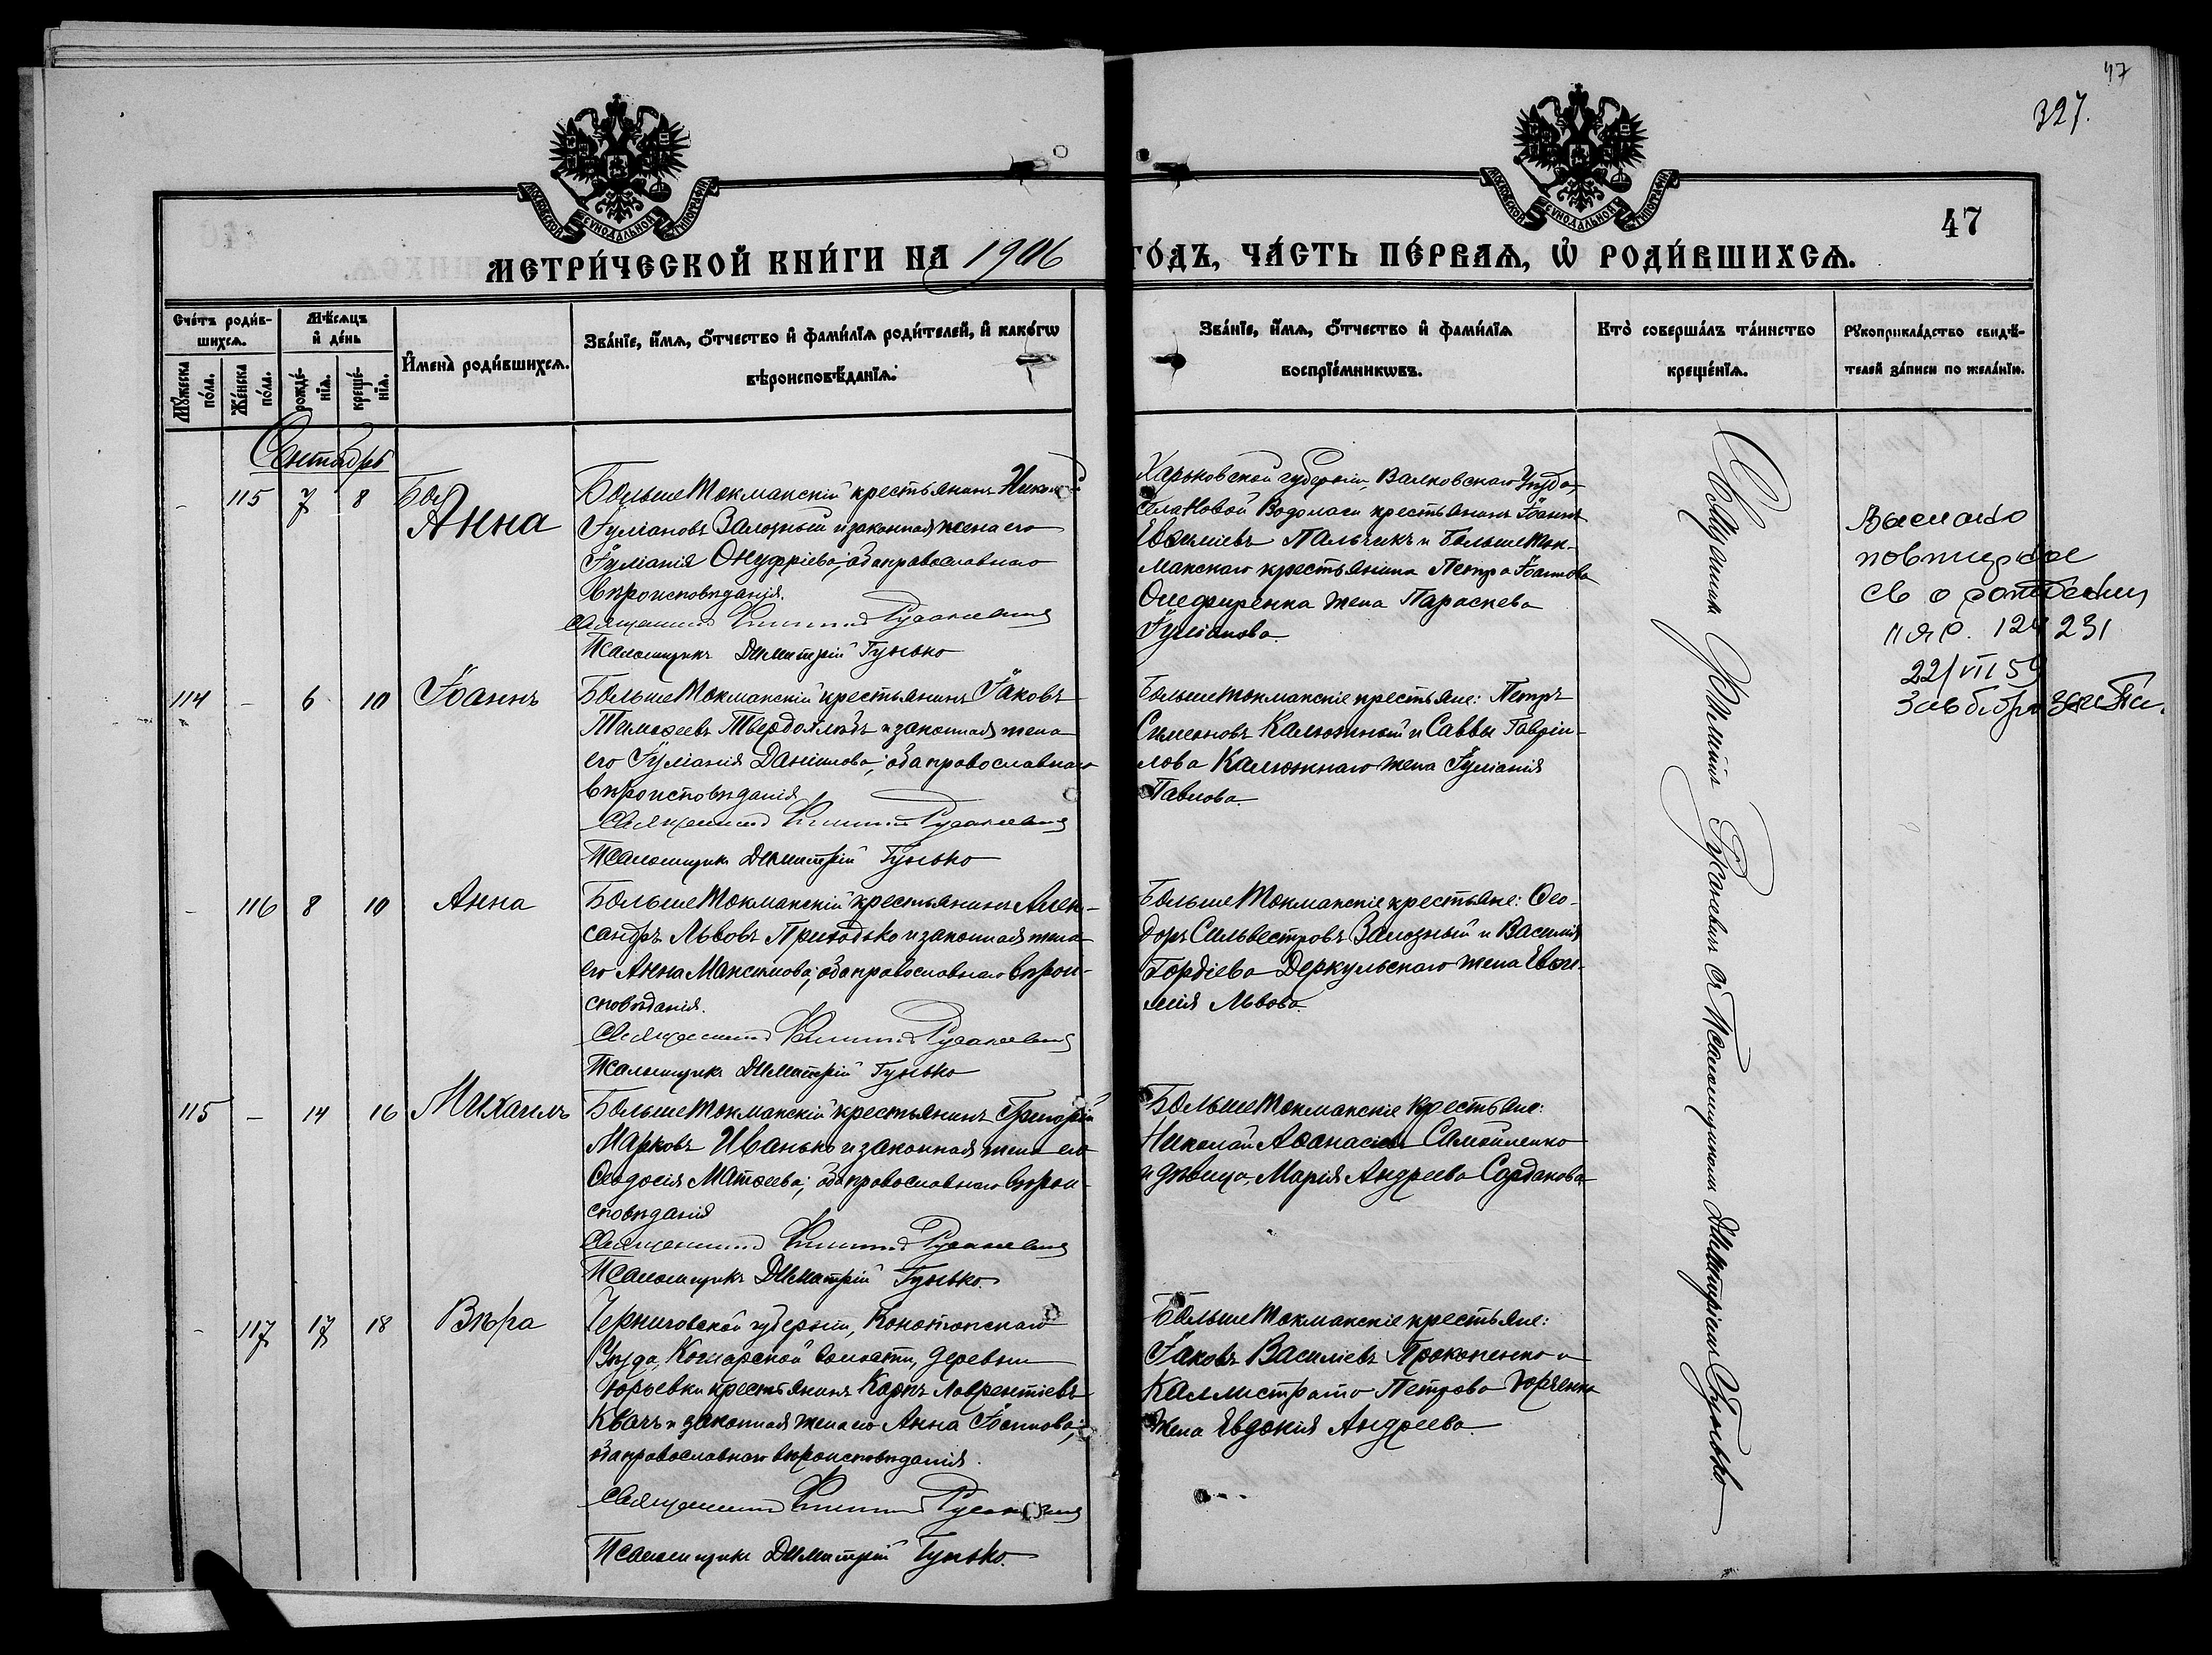 47
327.
МОСКОВСКОЙ СѴНОДАЛЬНОЙ ТИПОГРАФІИ
МОСКОВСКОЙ СѴНОДАЛЬНОЙ ТИПОГРАФІИ
47
МЕТРИ́ЧЕСКОЙ КНИ́ГИ НА 1906 ГО́ДЪ, ЧА́СТЬ ПЕ́РВАѦ, Ѡ҆ РОДИ́ВШИХСѦ.
Сче́тъ роди́в-
шихсѧ.
Мѣ́сѧцъ
и҆ де́нь
Мꙋ́жеска по́ла.
Же́нска по́ла.
рожде́-
нїѧ.
креще́-
нїѧ.
И҆мена̀ роди́вшихсѧ.
Зва́нїе, и҆́мѧ, ѻ҆́тчество и҆ фами́лїѧ роди́телей, и҆ како́гѡ
вѣроисповѣ́данїѧ.
Зва́нїе, и҆́мѧ, ѻ҆́тчество и҆ фами́лїѧ
воспрїе́мникѡвъ.
Кто̀ соверша́лъ та́инство
креще́нїѧ.
Рꙋкоприкла́дство свидѣ́-
телей за́писи по жела́нїю.
Сентябрь
- 115 7 8
Анна
БольшеТокмакскій крестьянинъ Никол
Іуліановъ Залозный и законная жена его
Іуліанія Онуфріева; оба православнаго
вѣроисповѣданія.
Священникъ Русаневичъ
Псаломщикъ Димитрій Гунько
Харьковской губерніи, Валковскаго Уѣзда,
села Новой Водолаги крестьянинъ Іоаннъ
Евфиміевъ Пальчикъ и БольшеТок-
макскаго крестьянина Петра Іоаннова
Олефиренка жена Параскева
Іуліанова.
Священникъ Русаневичъ съ Псаломщикомъ Димитріемъ Гунько.
Выслано
повторное
св о рождении
ПЯС. 124231
22/VII 59
114 - 6 10 Іоаннъ
БольшеТокмакскій крестьянинъ Іаковъ
Тимоѳеевъ Твердохлѣбъ и законная жена
его Іуліанія Даніилова; оба православнаго
вѣроисповѣданія
Священникъ Русаневичъ
Псаломщикъ Димитрій Гунько
БольшеТокмакскіе крестьяне: Петръ
Симеоновъ Калюжный и Саввы Гавріи-
лова Калюжнаго жена Іуліанія
Павлова.
- 116 8 10 Анна
БольшеТокмакскій крестьянинъ Алек-
сандръ Львовъ Приходько и законная жена
его Анна Максимова; оба православнаго вѣрои-
сповѣданія.
Священникъ Русаневичъ
Псаломщикъ Димитрій Гунько
БольшеТокмакскіе крестьяне: Ѳео-
доръ Сильвестровъ Залозный и Василія
Гордіева Деркульскаго жена Евѳи-
мія Львова.
115 - 14 16 Михаилъ
БольшеТокмакскій крестьянинъ Григорій
Марковъ Иванько и законная жена его
Ѳеодосія Матѳеева; оба православнаго вѣрои-
сповѣданія
Священникъ Русаневичъ
Псаломщикъ Димитрій Гунько.
БольшеТокмакскіе крестьяне:
Николай Аѳанасіевъ Самойленко
и дѣвица, Марія Андреева Сардакова
- 117 17 18 Вѣра
Черниговской губерніи, Конотопскаго
Уѣзда, волости, деревни
Юрьевки крестьянинъ Карпъ Лаврентіевъ
Квачъ и законная жена его Анна Іоаннова;
оба православнаго вѣроисповѣданія.
Священникъ Русаневичъ
Псаломщикъ Димитрій Гунько.
БольшеТокмакскіе крестьяне:
Іаковъ Василіевъ Прокопенко и
Каллистрата Петрова Юрченко
жена Евдокія Андреева.